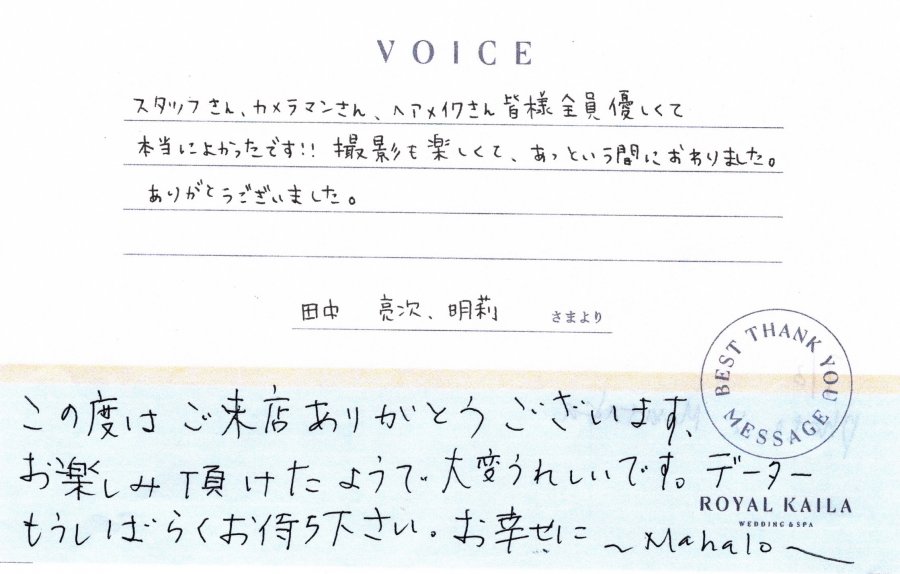 VOICE
スタッフさん、カメラマンさん、ヘアメイクさん皆様全員優しくて
本当によかったです!! 撮影も楽しくて、あっという間におわりました。
ありがとうございました。
田中 亮次、明莉 さまより
BEST THANK YOU MESSAGE
この度は ご来店ありがとう ございます、
お楽しみ頂けたようで大変うれしいです。データー
もうしばらくお待ち下さい。お幸せに ～Mahalo～
ROYAL KAILA
WEDDING & SPA